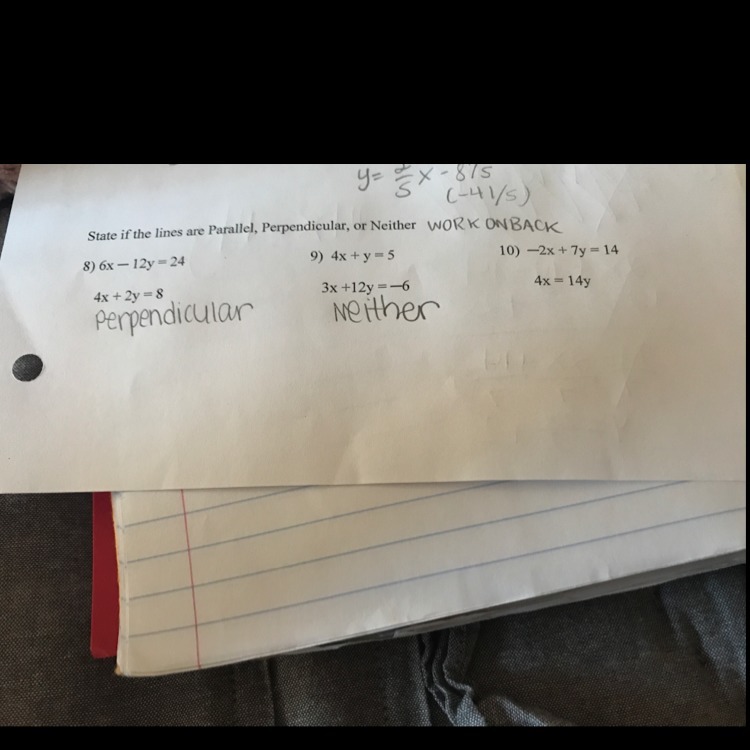 y= 2/5 x - 8/5
(-4 1/5)
State if the lines are Parallel, Perpendicular, or Neither WORK ON BACK
8) 6x − 12y = 24
4x + 2y = 8
Perpendicular
9) 4x + y = 5
3x +12y = −6
Neither
10) −2x + 7y = 14
4x = 14y